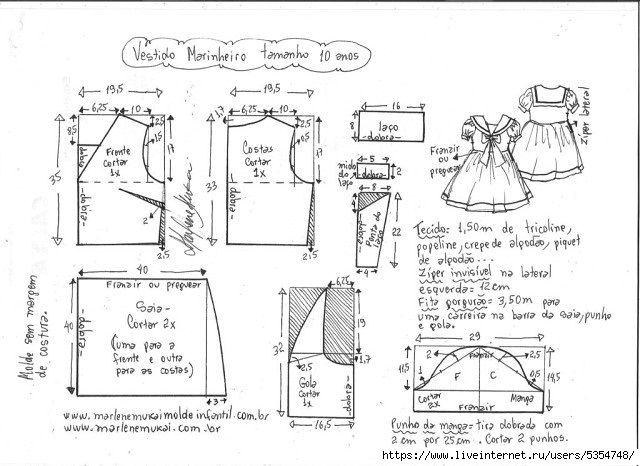 Vestido Marinheiro tamanho 10 anos
19,5
6,25 10
2,5
8,5
1,5
dobra
Frente
Cortar
1x
17
35
dobra
2
2,5
19,5
1,7
6,25 10
2,5
0,5
Costas
Cortar
1x
17
33
dobra
2,5
16
8
laço
-dobra-
5
miolo
do
laço
dobra
2
8
4
dobra
Ponta do
laço
22
4
Franzir ou
preguear
Zíper lateral
Tecido: 1,50m de tricoline,
popeline, crepe de algodão, piquet
de algodão...
Zíper invisível na lateral
esquerda = 12cm
Fita gorgurão = 3,50m para
uma carreira na barra da saia, punho
e gola.
40
Franzir ou preguear
40
dobra
Saia-
Cortar 2x
(uma para a
frente e outra
para as costas)
3
Molde sem margem
de costura.
6,25
32
19
1,7
2,5
Gola
Cortar
1x
dobra
16,5
29
11,5
2
Franzir
2,5
1
F
C
0,5
14,5
Cortar
2x
Manga
Franzir
Punho da manga= tira dobrada com
2cm por 25cm. Cortar 2 punhos.
www.marlenemukaimoldeinfantil.com.br
www.marlenemukai.com.br
https://www.liveinternet.ru/users/5354748/